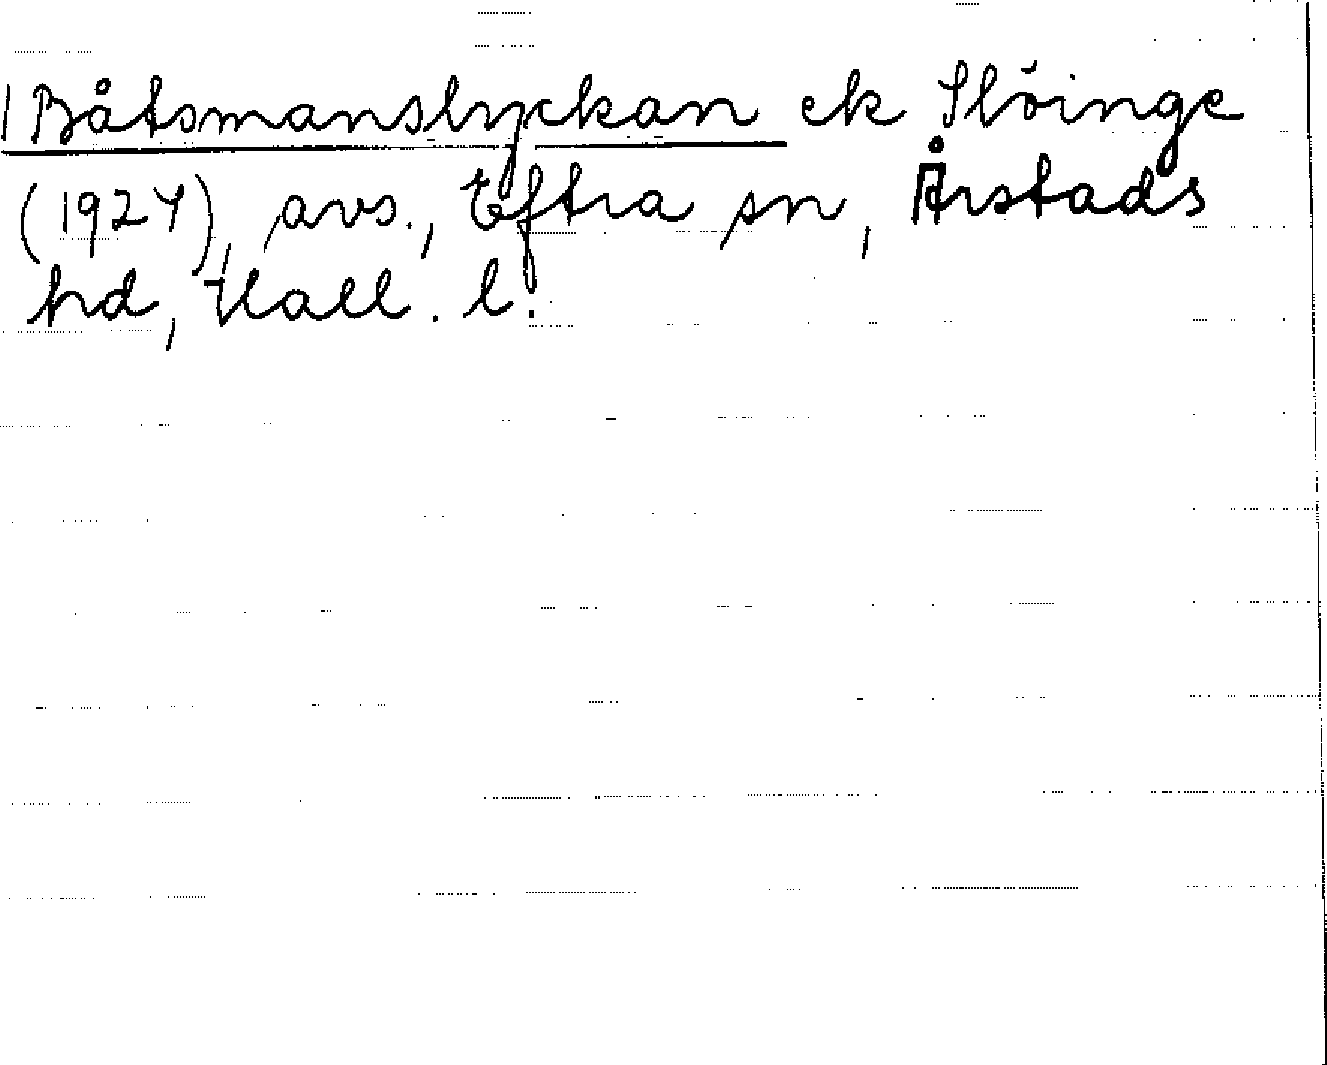 Båtsmanslyckan ek Slöinge
(1927), avs., Eftra sn, Årstads
hd, Hall. l.